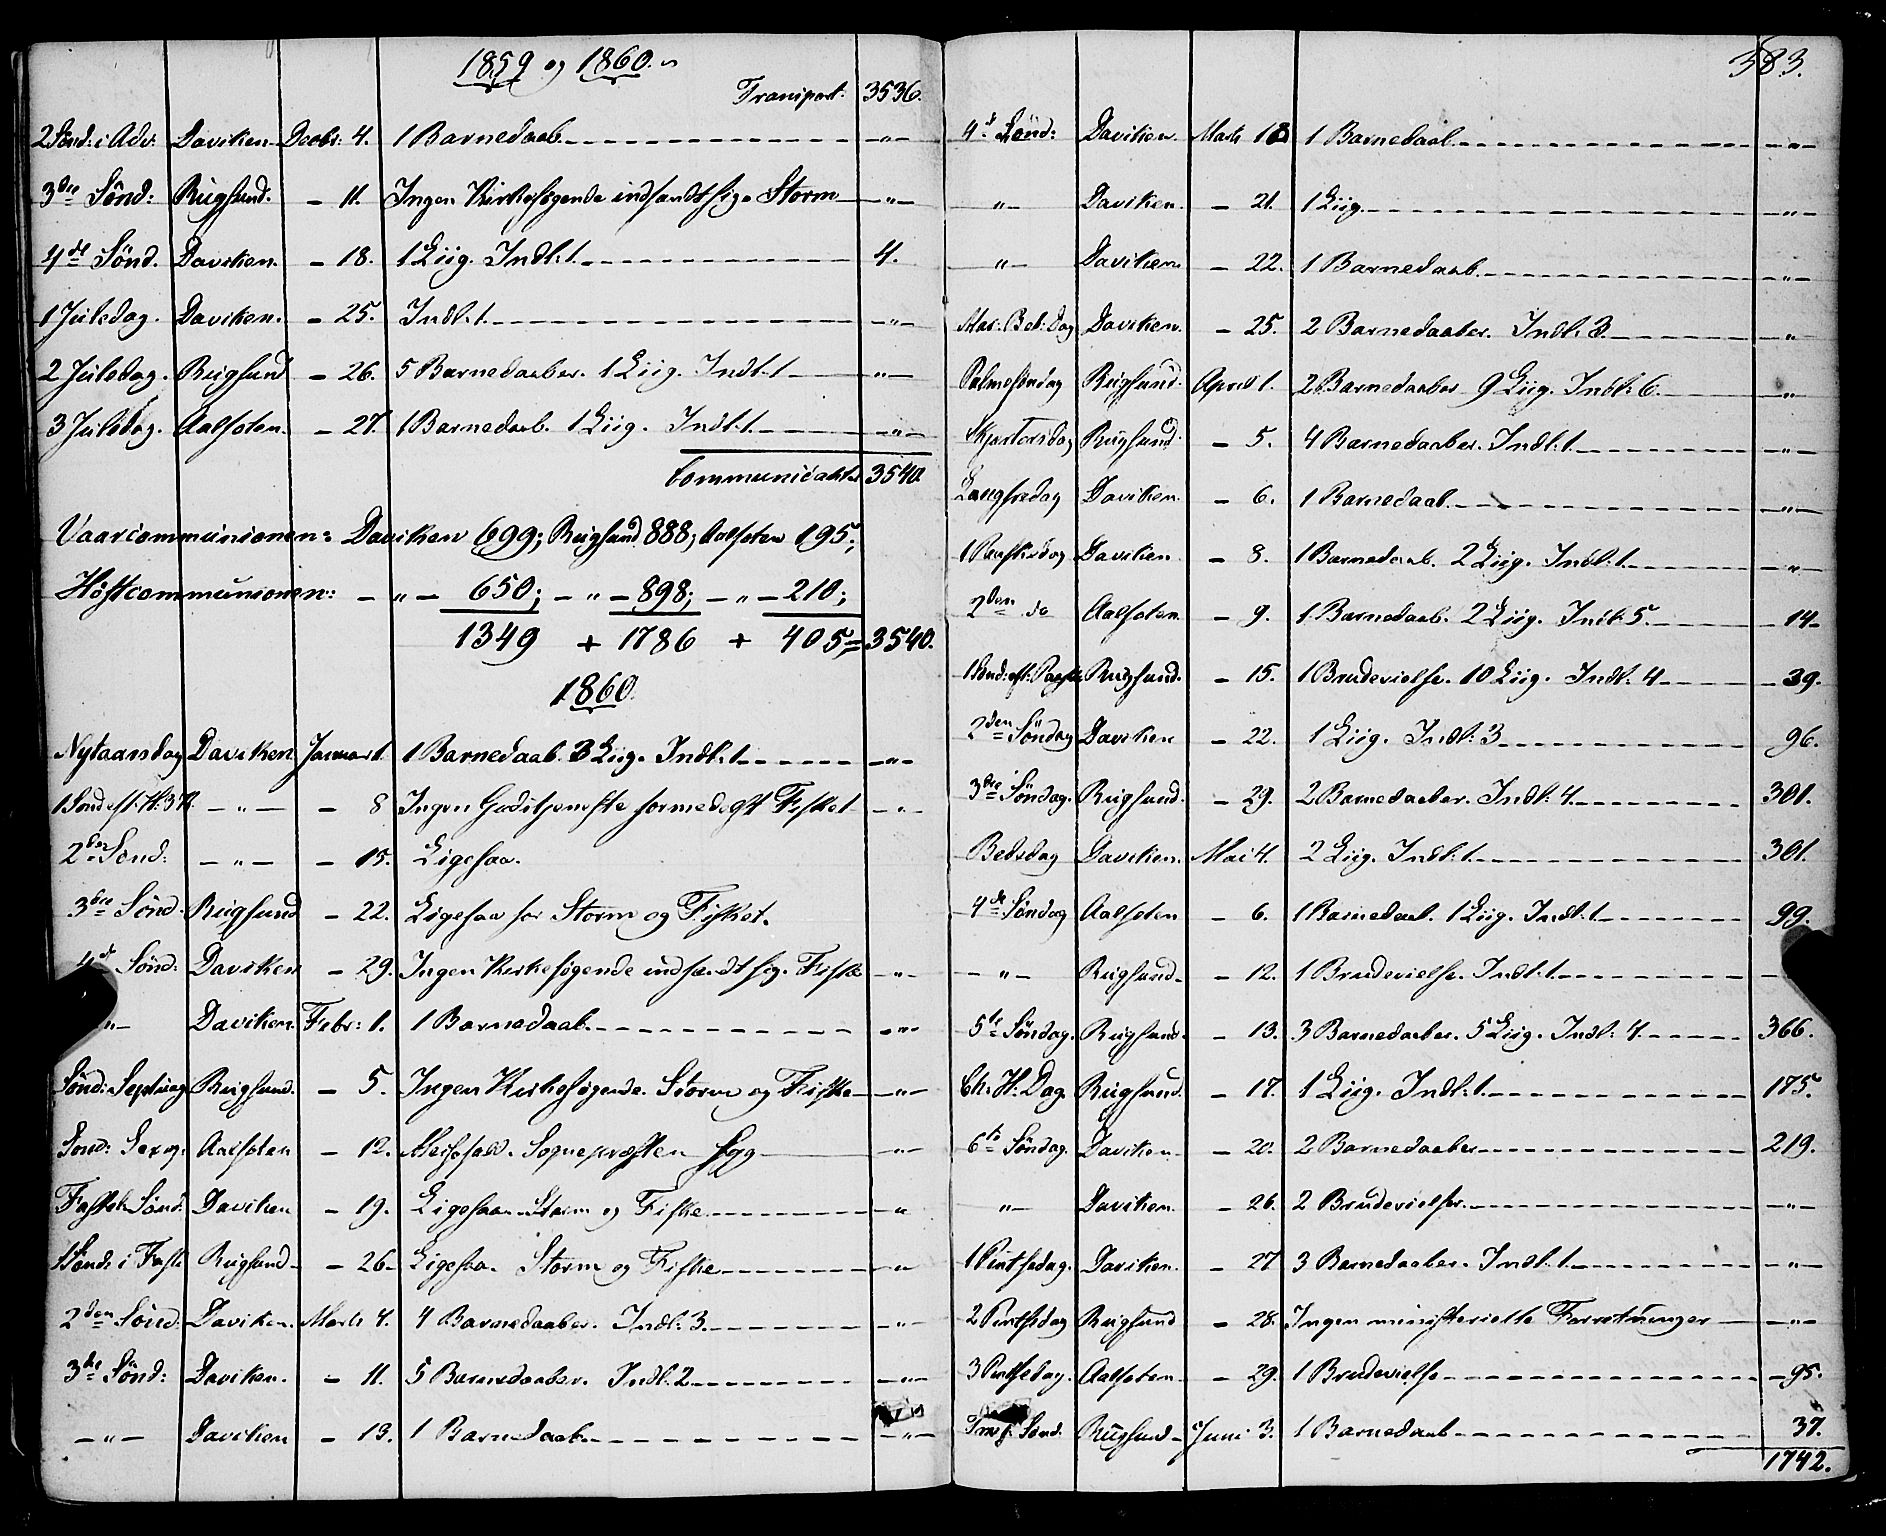 1859 og 1860.
Transport: 3536.
2 Sønd: i Adv: Daviken Decbr: 4. 1 Barnedaab. -"-
3die Sönd: Rugsund. - 11. Ingen Kirkesøgende indfandt sig. Storm -"-
4de Sönd. Daviken. - 18. 1 Liig. Indl: 1. 4.
1 Juledag. Daviken. - 25. Indl: 1. -"-
2 Juledag. Rugsund - 26. 5 Barnedaaber. 1 Liig. Indl: 1 -"-
3 Juledag. Aalfoten. - 27. 1 Barnedaab. 1 Liig. Indl: 1. -"-
Communicanter 3540.
Vaarcommunionen: Daviken 699; Rugsund 888; Aalfoten 195;
Höstcommunionen: -"- 650; -"- 898; -"- 210;
1349 + 1786 + 405 = 3540.
1860.
Nytaarsdag Daviken Januar 1. 1 Barnedaab. 3 Liig. Indl: 1 -"-
1 Sønd. eft. H: 3 K. -"- - 8 Ingen Gudstjeneste formedelst Fisket -"-
2den Sønd: -"- - 15. Ligesaa.
3die Sönd. Rugsund - 22. Ligesaa for Storm og Fisket.
4de Sönd: Daviken - 29. Ingen Kirkesøgende indfandt sig. Fiske -"-
-"- Daviken. Febr: 1. 1 Barnedaab. -"-
Sönd: Septuag Rugsund. - 5. Ingen Kirkesøgende. Storm og Fiske -"-
Sönd: Sexag. Aalfoten - 12. Messefald. Sognepræsten syg -"-
Fastel: Sönd: Daviken - 19. Ligesaa. Storm og Fiske "
1 Sönd: i Faste Rugsund - 26. Ligesaa. Storm og Fiske "
2den Sönd: Daviken. Marts 4. 4 Barnedaaber. Indl: 3. -"-
3die Sönd: Daviken. - 11. 5 Barnedaaber. Indl: 2 -"-
-"- Daviken - 13. 1 Barnedaab. -"-
383.
4de Sönd: Daviken. Marts 18 1 Barnedaab. -"-
-"- Daviken. - 21. 1 Liig. -"-
-"- Daviken - 22. 1 Barnedaab. "
Mar: Beb: Dag Daviken. - 25. 2 Barnedaaber. Indl: 3. "
Palmesöndag Rugsund. April 1. 2 Barnedaaber 9 Liig. Indl: 6. "
Skjærtorsdag Rugsund. - 5. 4 Barnedaaber. Indl: 1. -"-
Langfredag Daviken. - 6. 1 Barnedaab. -"-
1 Paaskedag Daviken. - 8. 1 Barnedaab. 2 Liig. Indl: 1. -"-
2den do Aalfoten. - 9. 1 Barnedaab. 2 Liig. Indl: 5. 14
1 Sönd: eft: Paaske Rugsund. - 15. 1 Brudevielse. 10 Liig. Indl: 4 39.
2den Söndag Daviken - 22. 1 Liig. Indl: 3 96.
3die Söndag. Rugsund. - 29. 2 Barnedaaber. Indl: 4. 301.
Bedsdag Daviken. Mai 4. 2 Liig. Indl: 1. 301.
4de Söndag Aalfoten - 6. 1 Barnedaab. 1 Liig. Indl: 1 99.
-"- Rugsund. - 12. 1 Brudevielse. Indl: 1
5te Söndag. Rugsund. - 13. 3 Barnedaaber. 5 Liig. Indl: 4. 366.
Ch: H: Dag. Rugsund. - 17. 1 Liig. Indl: 1. 175.
6te Söndag. Daviken - 20. 2 Barnedaaber 219.
-"- Daviken. - 26. 2 Brudevielser. -"-
1 Pintsedag. Daviken. - 27 3 Barnedaaber. Indl: 1. -"-
2 Pintsedag Rugsund - 28. Ingen ministerielle Forretninger -"-
3 Pintsedag. Aalfoten. - 29. 1 Brudevielse 95.
Sönd. Rugsund Juni 3. 1 Barnedaab 37.
1742.